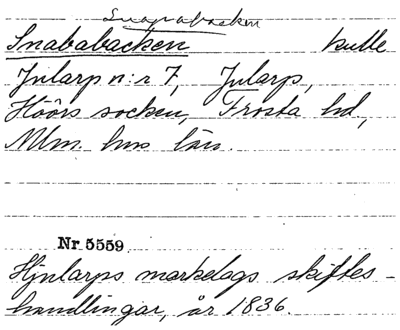 Snapabacken
Snababacken kulle
Jularp n:r 7, Jularp,
Höörs socken, Frosta hd,
Mlm. hus län.
Nr 5559
Hjularps markelags skiftes-
handlingar, år 1836.